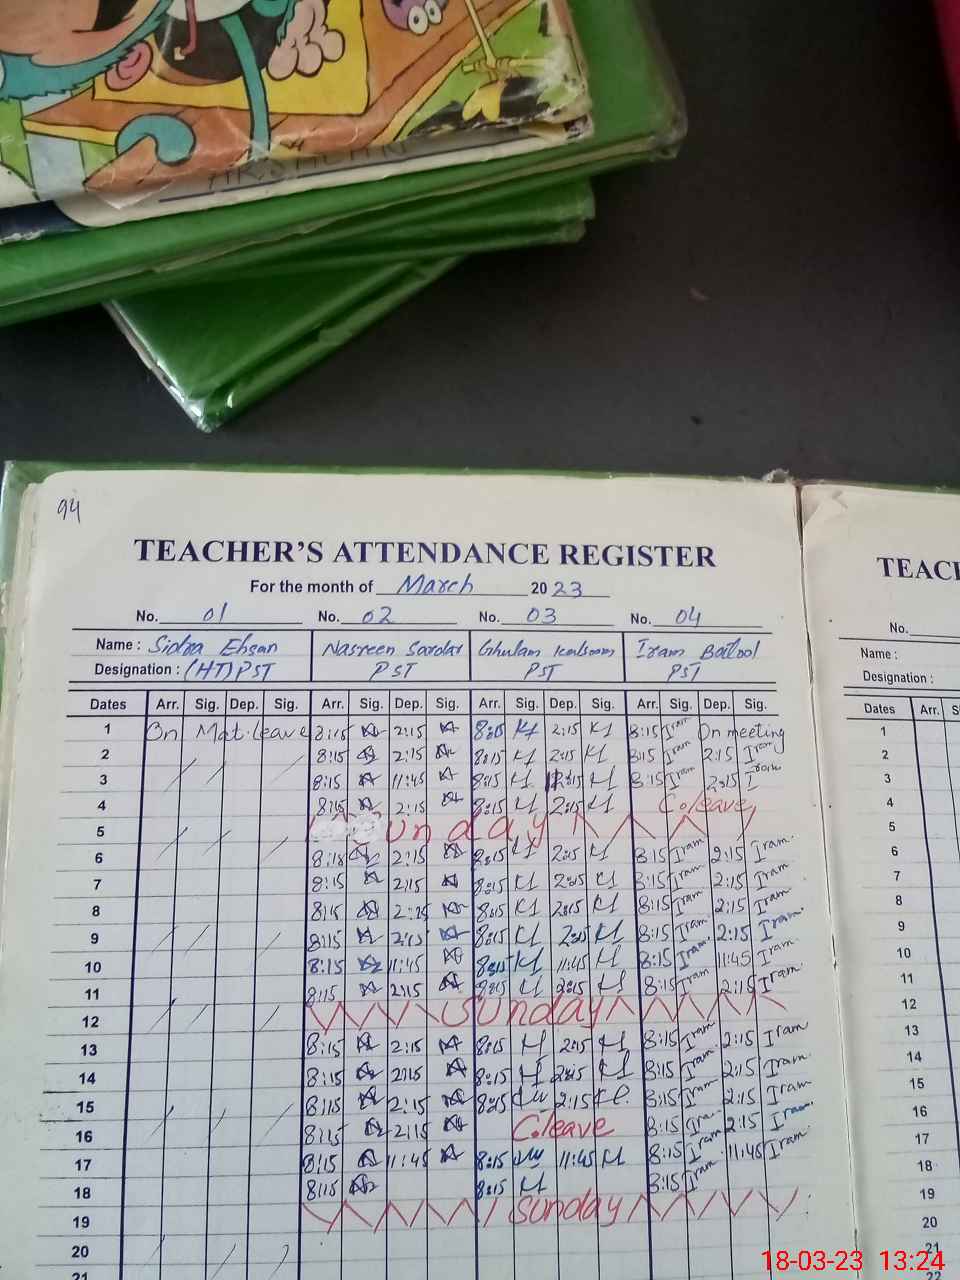 ARSALAN
94
TEACHER'S ATTENDANCE REGISTER
For the month of March 2023
No. 01 No. 02 No. 03 No. 04
Name : Sidra Ehsan Nasreen Sardar Ghulam Kalsoom Iram Batool
Designation : (HT) PST PST PST PST
Dates Arr. Sig. Dep. Sig. Arr. Sig. Dep. Sig. Arr. Sig. Dep. Sig. Arr. Sig. Dep. Sig.
1 On Mat. leave 8:15 2:15 8:15 K1 2:15 K1 8:15 Iram On meeting
2 8:15 2:15 8:15 K1 2:15 K1 8:15 Iram 2:15 Iram
3 8:15 11:45 8:15 K1 K1 8:15 Iram 2:15 Iram
4 8:15 2:15 8:15 K1 2:15 K1 C.leave
5 Sunday
6 2:15 8:15 K1 2:15 K1 8:15 Iram 2:15 Iram.
7 8:15 2:15 8:15 K1 2:15 K1 8:15 Iram 2:15 Iram
8 8:15 2:15 8:15 K1 2:15 K1 8:15 Iram 2:15 Iram
9 8:15 2:15 8:15 K1 2:15 K1 8:15 Iram 2:15 Iram.
10 8:15 11:45 8:15 K1 11:45 K1 8:15 Iram. 11:45 Iram
11 8:15 2:15 8:15 K1 2:15 K1 8:15 Iram 2:15 Iram.
12 Sunday
13 8:15 2:15 8:15 2:15 8:15 Iram 2:15 Iram
14 8:15 2:15 8:15 2:15 K1 8:15 Iram. 2:15 Iram.
15 8:15 2:15 8:15 2:15 8:15 Iram 2:15 Iram
16 8:15 2:15 C.leave 8:15 Iram 2:15 Iram.
17 8:15 11:45 8:15 11:45 K1 8:15 Iram 11:45 Iram
18 8:15 8:15 K1 8:15 Iram
19 Sunday
20
21
TEACH
No.
Name :
Designation :
Dates Arr. S
1
2
3
4
5
6
7
8
9
10
11
12
13
14
15
16
17
18
19
20
21
22
18-03-23 13:24